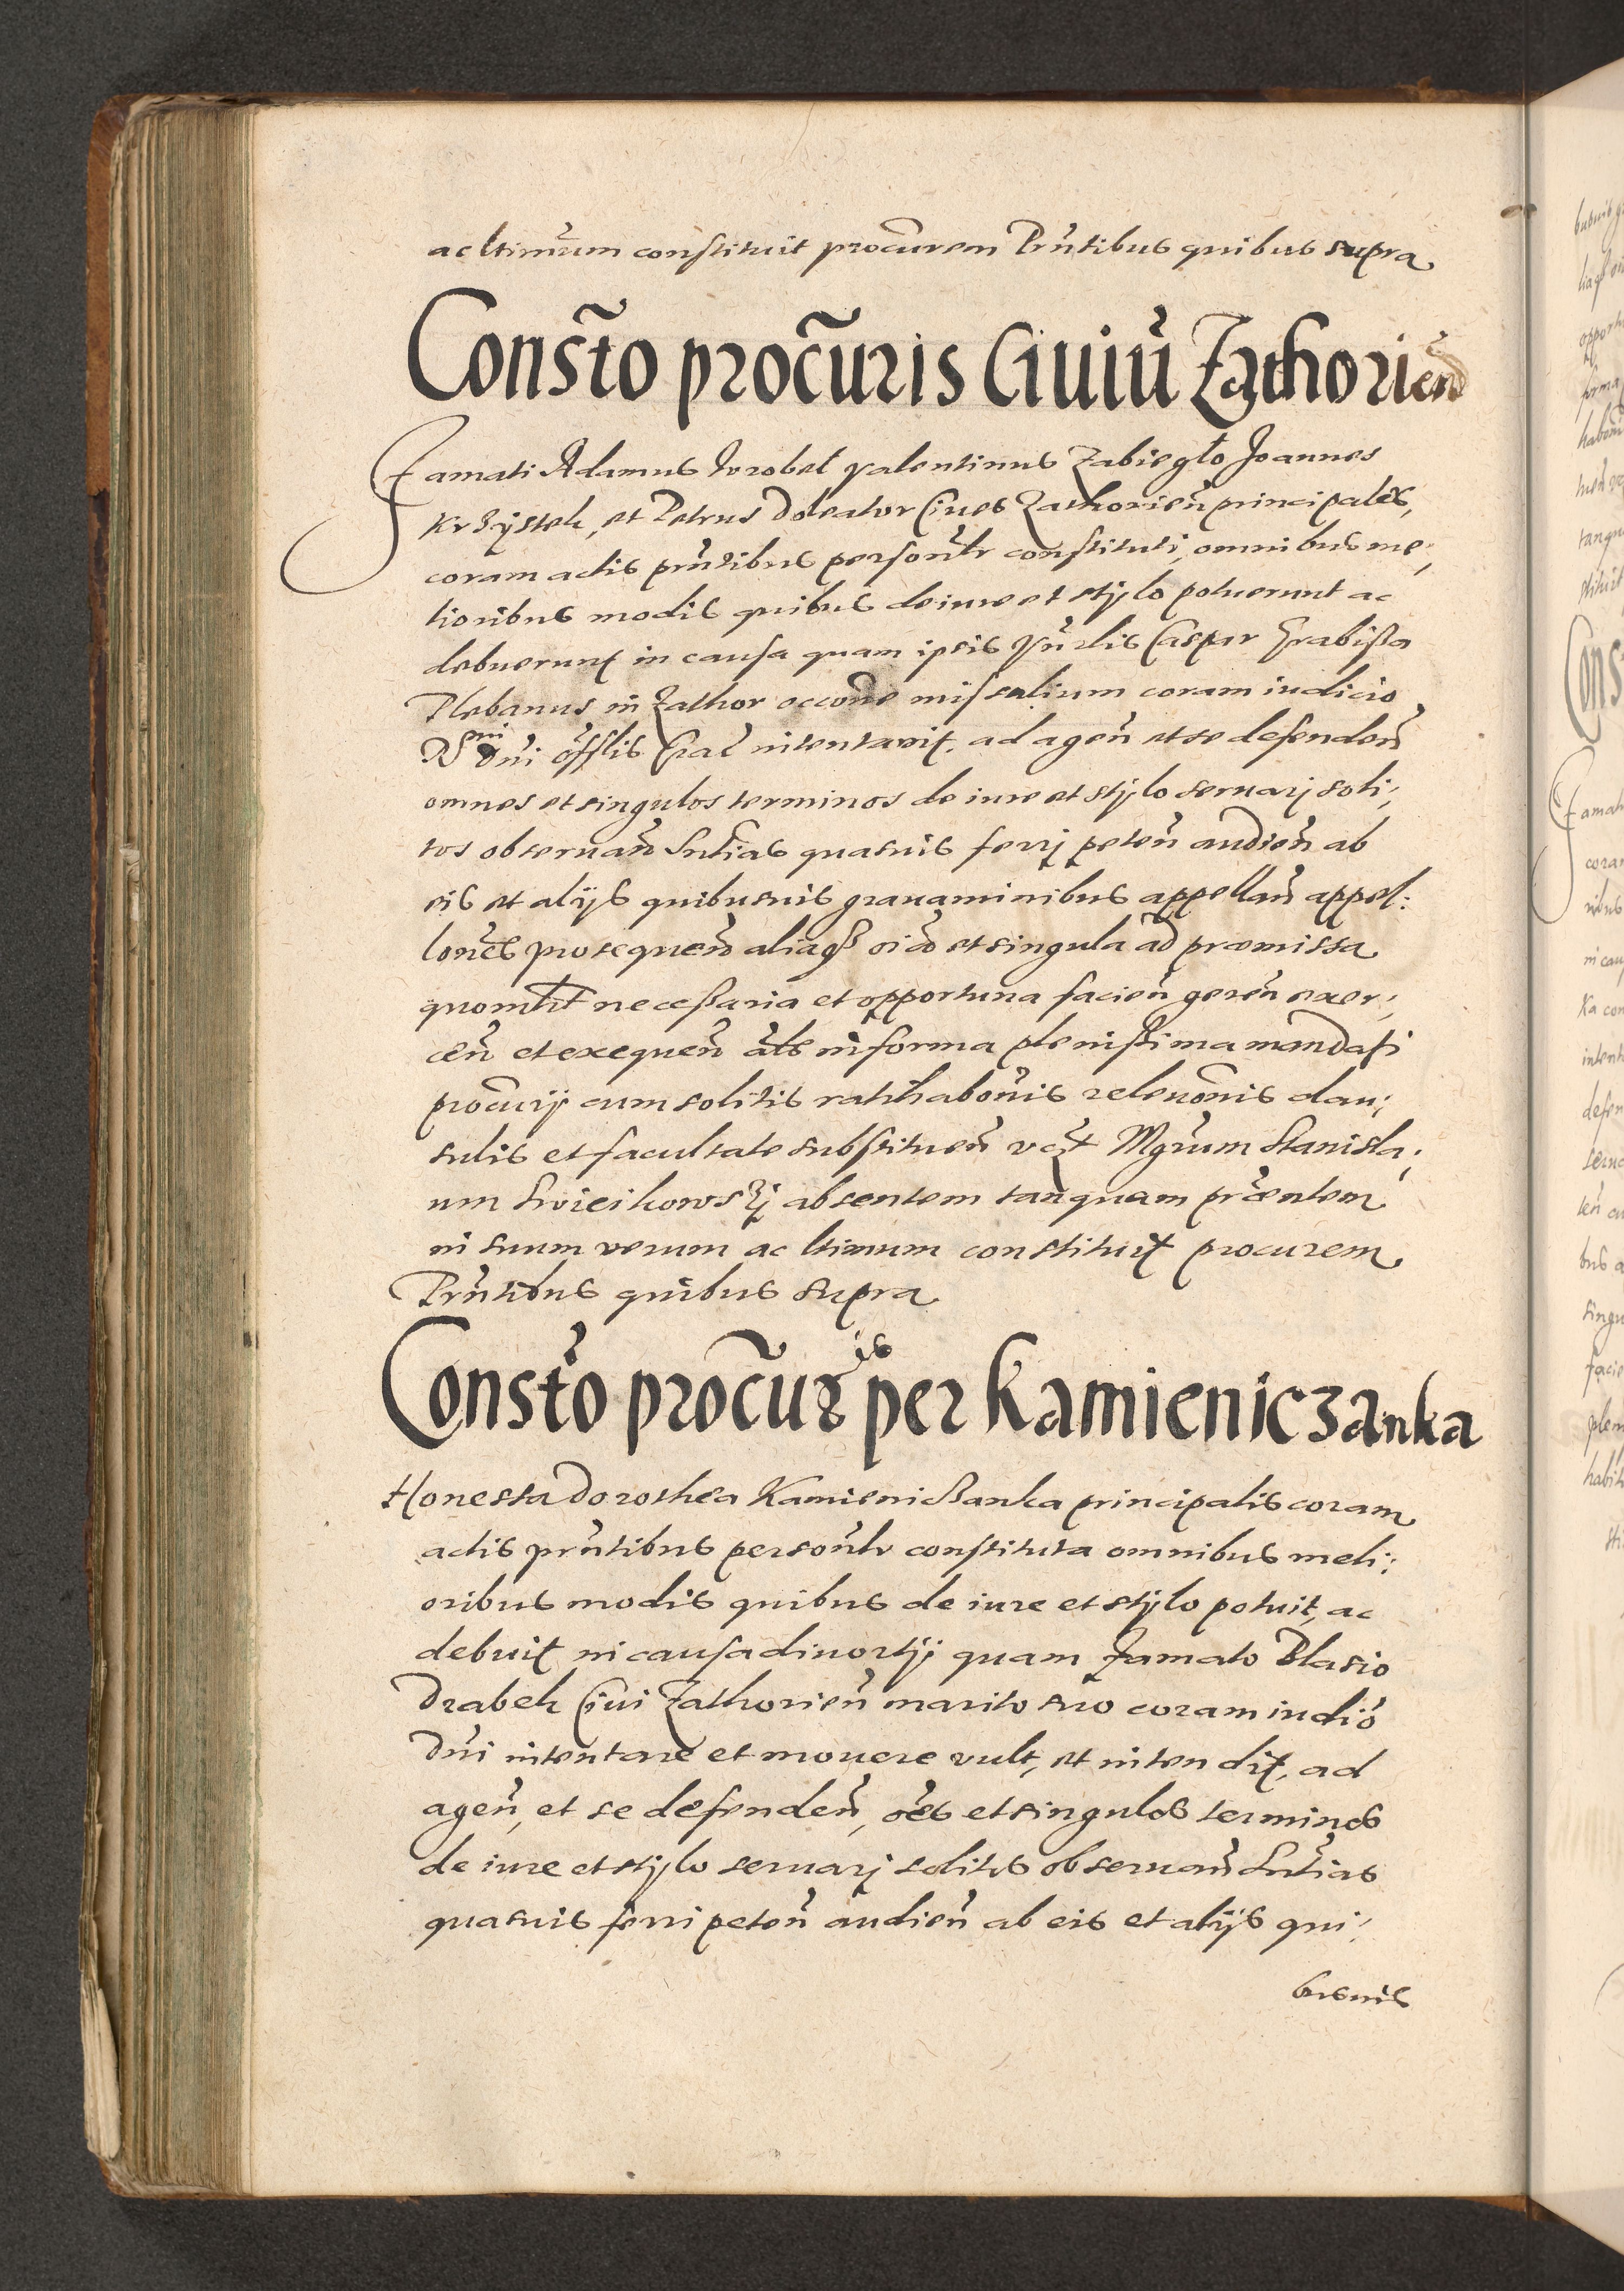 ac ltimum constituit procurem Prntibus quibus supra
Constto procuris Civiu Zathorien
Famati Adamus Wrobel Valentinus Zabiegło Joannes
Krzÿstek, et Petrus Doleator Cives Zathorien principales,
coram actis prntibus personlr constituti, omnibus me,
lioribus modis quibus de iure et stÿlo potuerunt ac
debuerunt in causa quam ipsis Vnrlis Caspar Grabißa
Plebanus in Zathor occone missalium coram iudicio
Rdmi Dni offlis Crac intentavit, ad agen et se defenden
omnes et singulos terminos de iure et stÿlo servarj soli,
tos observan Sntias quasvis ferrj peten audien ab
eis et alijs quibusvis gravaminibus appellan appel:
lones prosequen aliaqz oia et singula ad præmissa
quomlt necessaria et opportuna facien geren exer,
cen et exequen als in forma plenissima mandati
procurij cum solitis ratihabonis relevonis clau,
sulis et facultate substituen vczt Mgrum Stanisla,
um Swieikowskj absentem tanquam præntem
in suum verum ac ltimum constituit procurem
Prntibus quibus supra
Constto procuris per Kamieniczanka
Honesta Dorothea Kamienicßanka principalis coram
actis prntibus personlr constituta omnibus meli:
oribus modis quibus de iure et stÿlo potuit, ac
debuit in causa divortÿ quam Famato Blasio
Drabek Civi Zathorien marito suo coram iudio
Dni intentare et movere vult, et intendit, ad
agen, et se defenden, oes et singulos terminos
de iure et stÿlo servarj solitos observan Sntias
quasvis ferri peten audien ab eis et alijs qui,
busvis